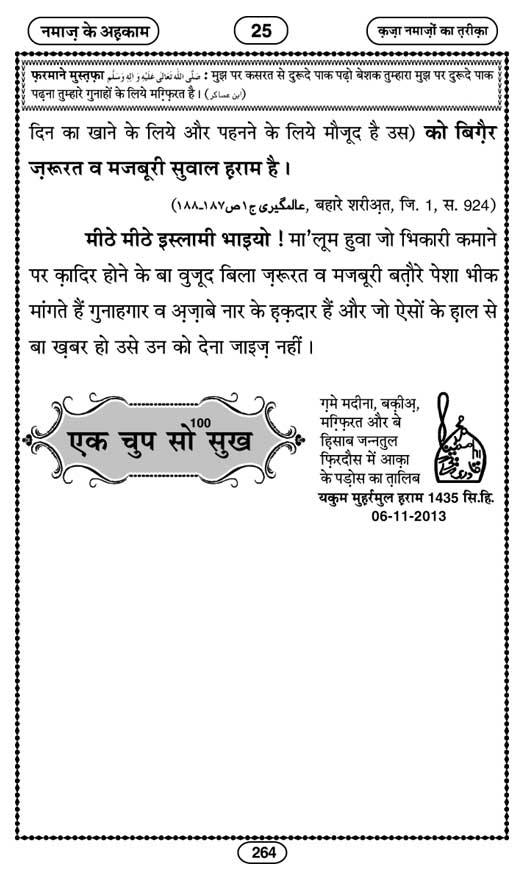 नमाज़ के अह़काम
25
क़ज़ा नमाज़ों का त़रीक़ा
फ़रमाने मुस्त़फ़ा صَلَّى اللهُ تَعَالٰى عَلَيْهِ وَاٰلِهٖ وَسَلَّم : मुझ पर कसरत से दुरूदे पाक पढ़ो बेशक तुम्हारा मुझ पर दुरूदे पाक
पढ़ना तुम्हारे गुनाहों के लिये मग़्फ़िरत है। (ابن عساکر)
दिन का खाने के लिये और पहनने के लिये मौजूद है उस) को बिग़ैर
ज़रूरत व मजबूरी सुवाल ह़राम है।
(عالمگیری ج١ص١٨٧-١٨٨, बहारे शरीअ़त, जि. 1, स. 924)
मीठे मीठे इस्लामी भाइयो ! मा'लूम हुवा जो भिकारी कमाने
पर क़ादिर होने के बा वुजूद बिला ज़रूरत व मजबूरी बत़ौरे पेशा भीक
मांगते हैं गुनाहगार व अ़ज़ाबे नार के ह़क़दार हैं और जो ऐसों के ह़ाल से
बा ख़बर हो उसे उन को देना जाइज़ नहीं।
एक चुप सो100 सुख
ग़मे मदीना, बक़ीअ़,
मग़्फ़िरत और बे
हि़साब जन्नतुल
फ़िरदौस में आक़ा
के पड़ोस का त़ालिब
यकुम मुह़र्रमुल ह़राम 1435 सि.हि.
06-11-2013
264